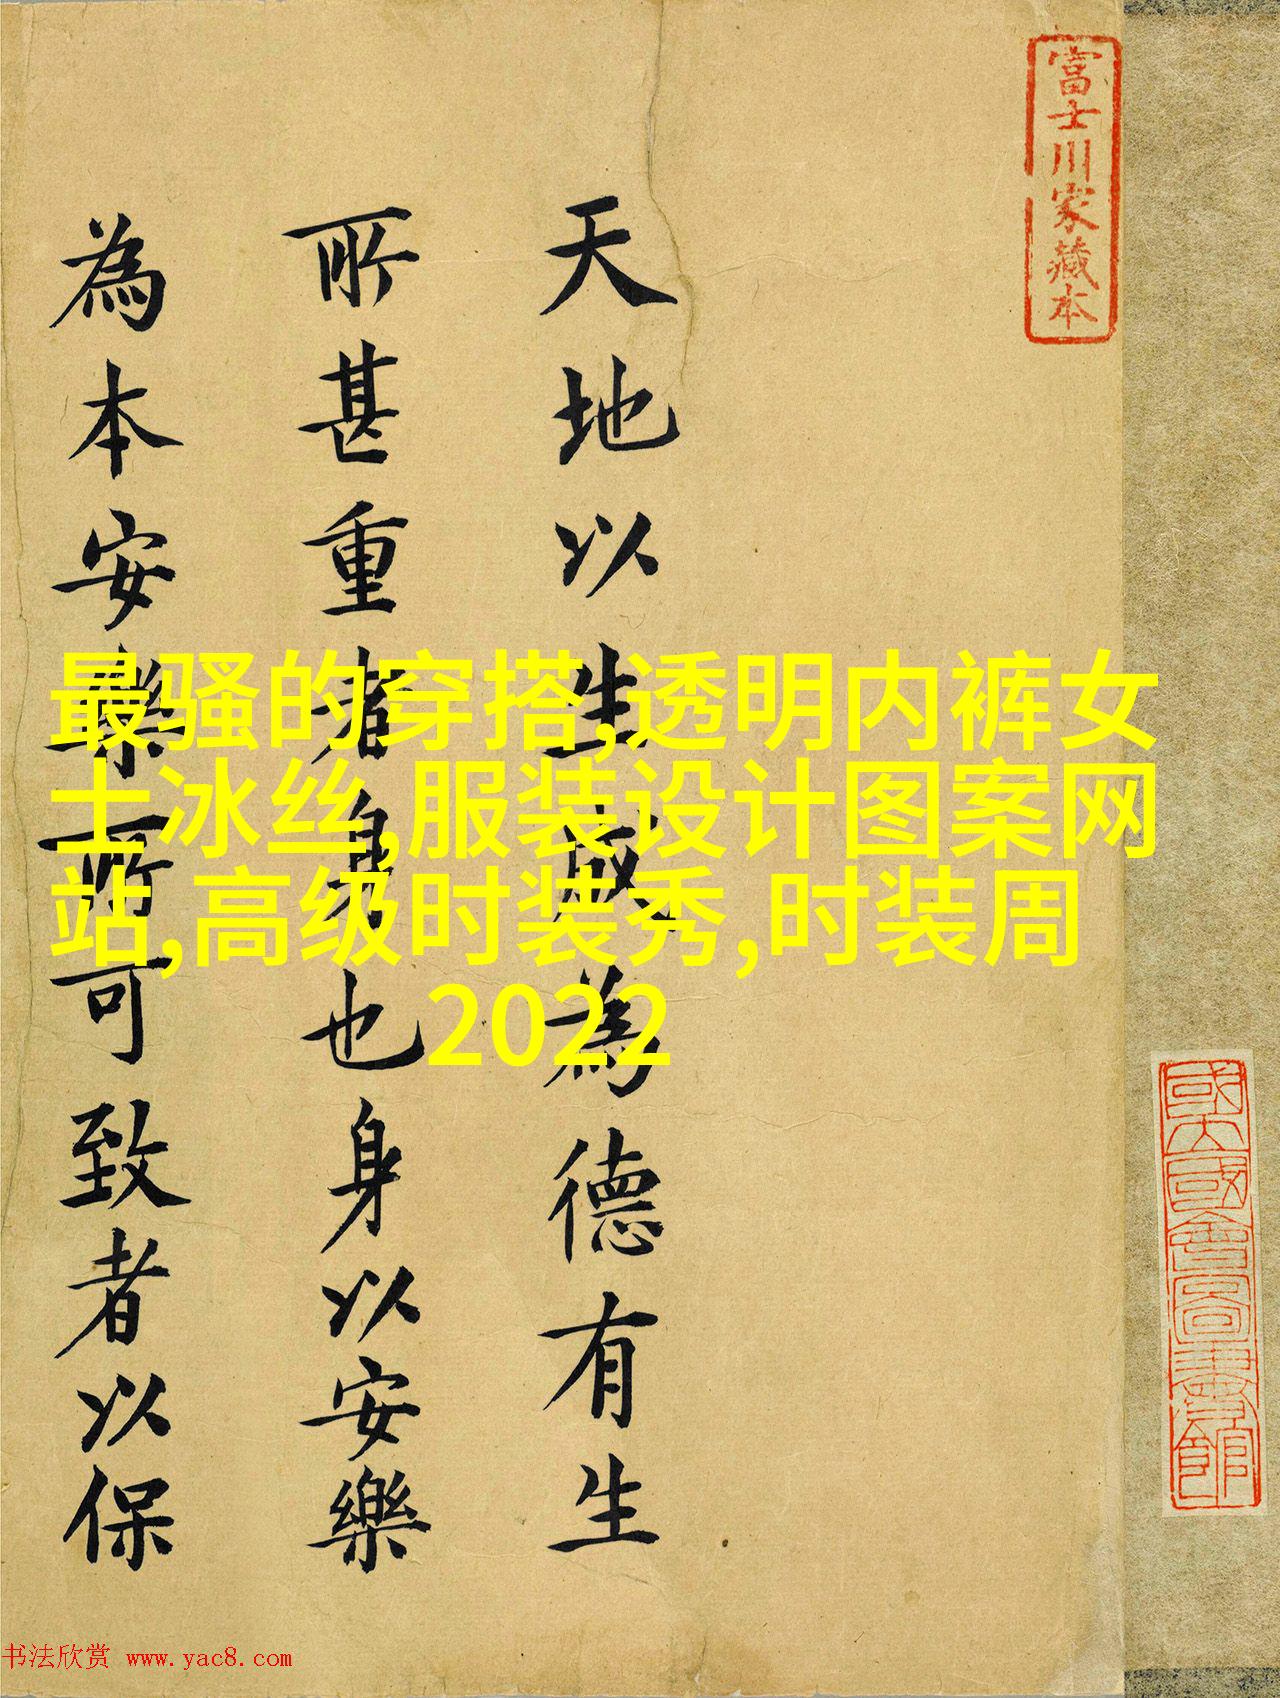 富士川家藏本
天地以生成為德有生
所甚重者身也身以安樂
為本安樂所可致者以保
最骚的穿搭,透明内裤女
士冰丝,服装设计图案网
站,高级时装秀,时装周
2022
國立國會圖書館
书法欣赏 www.yac8.com